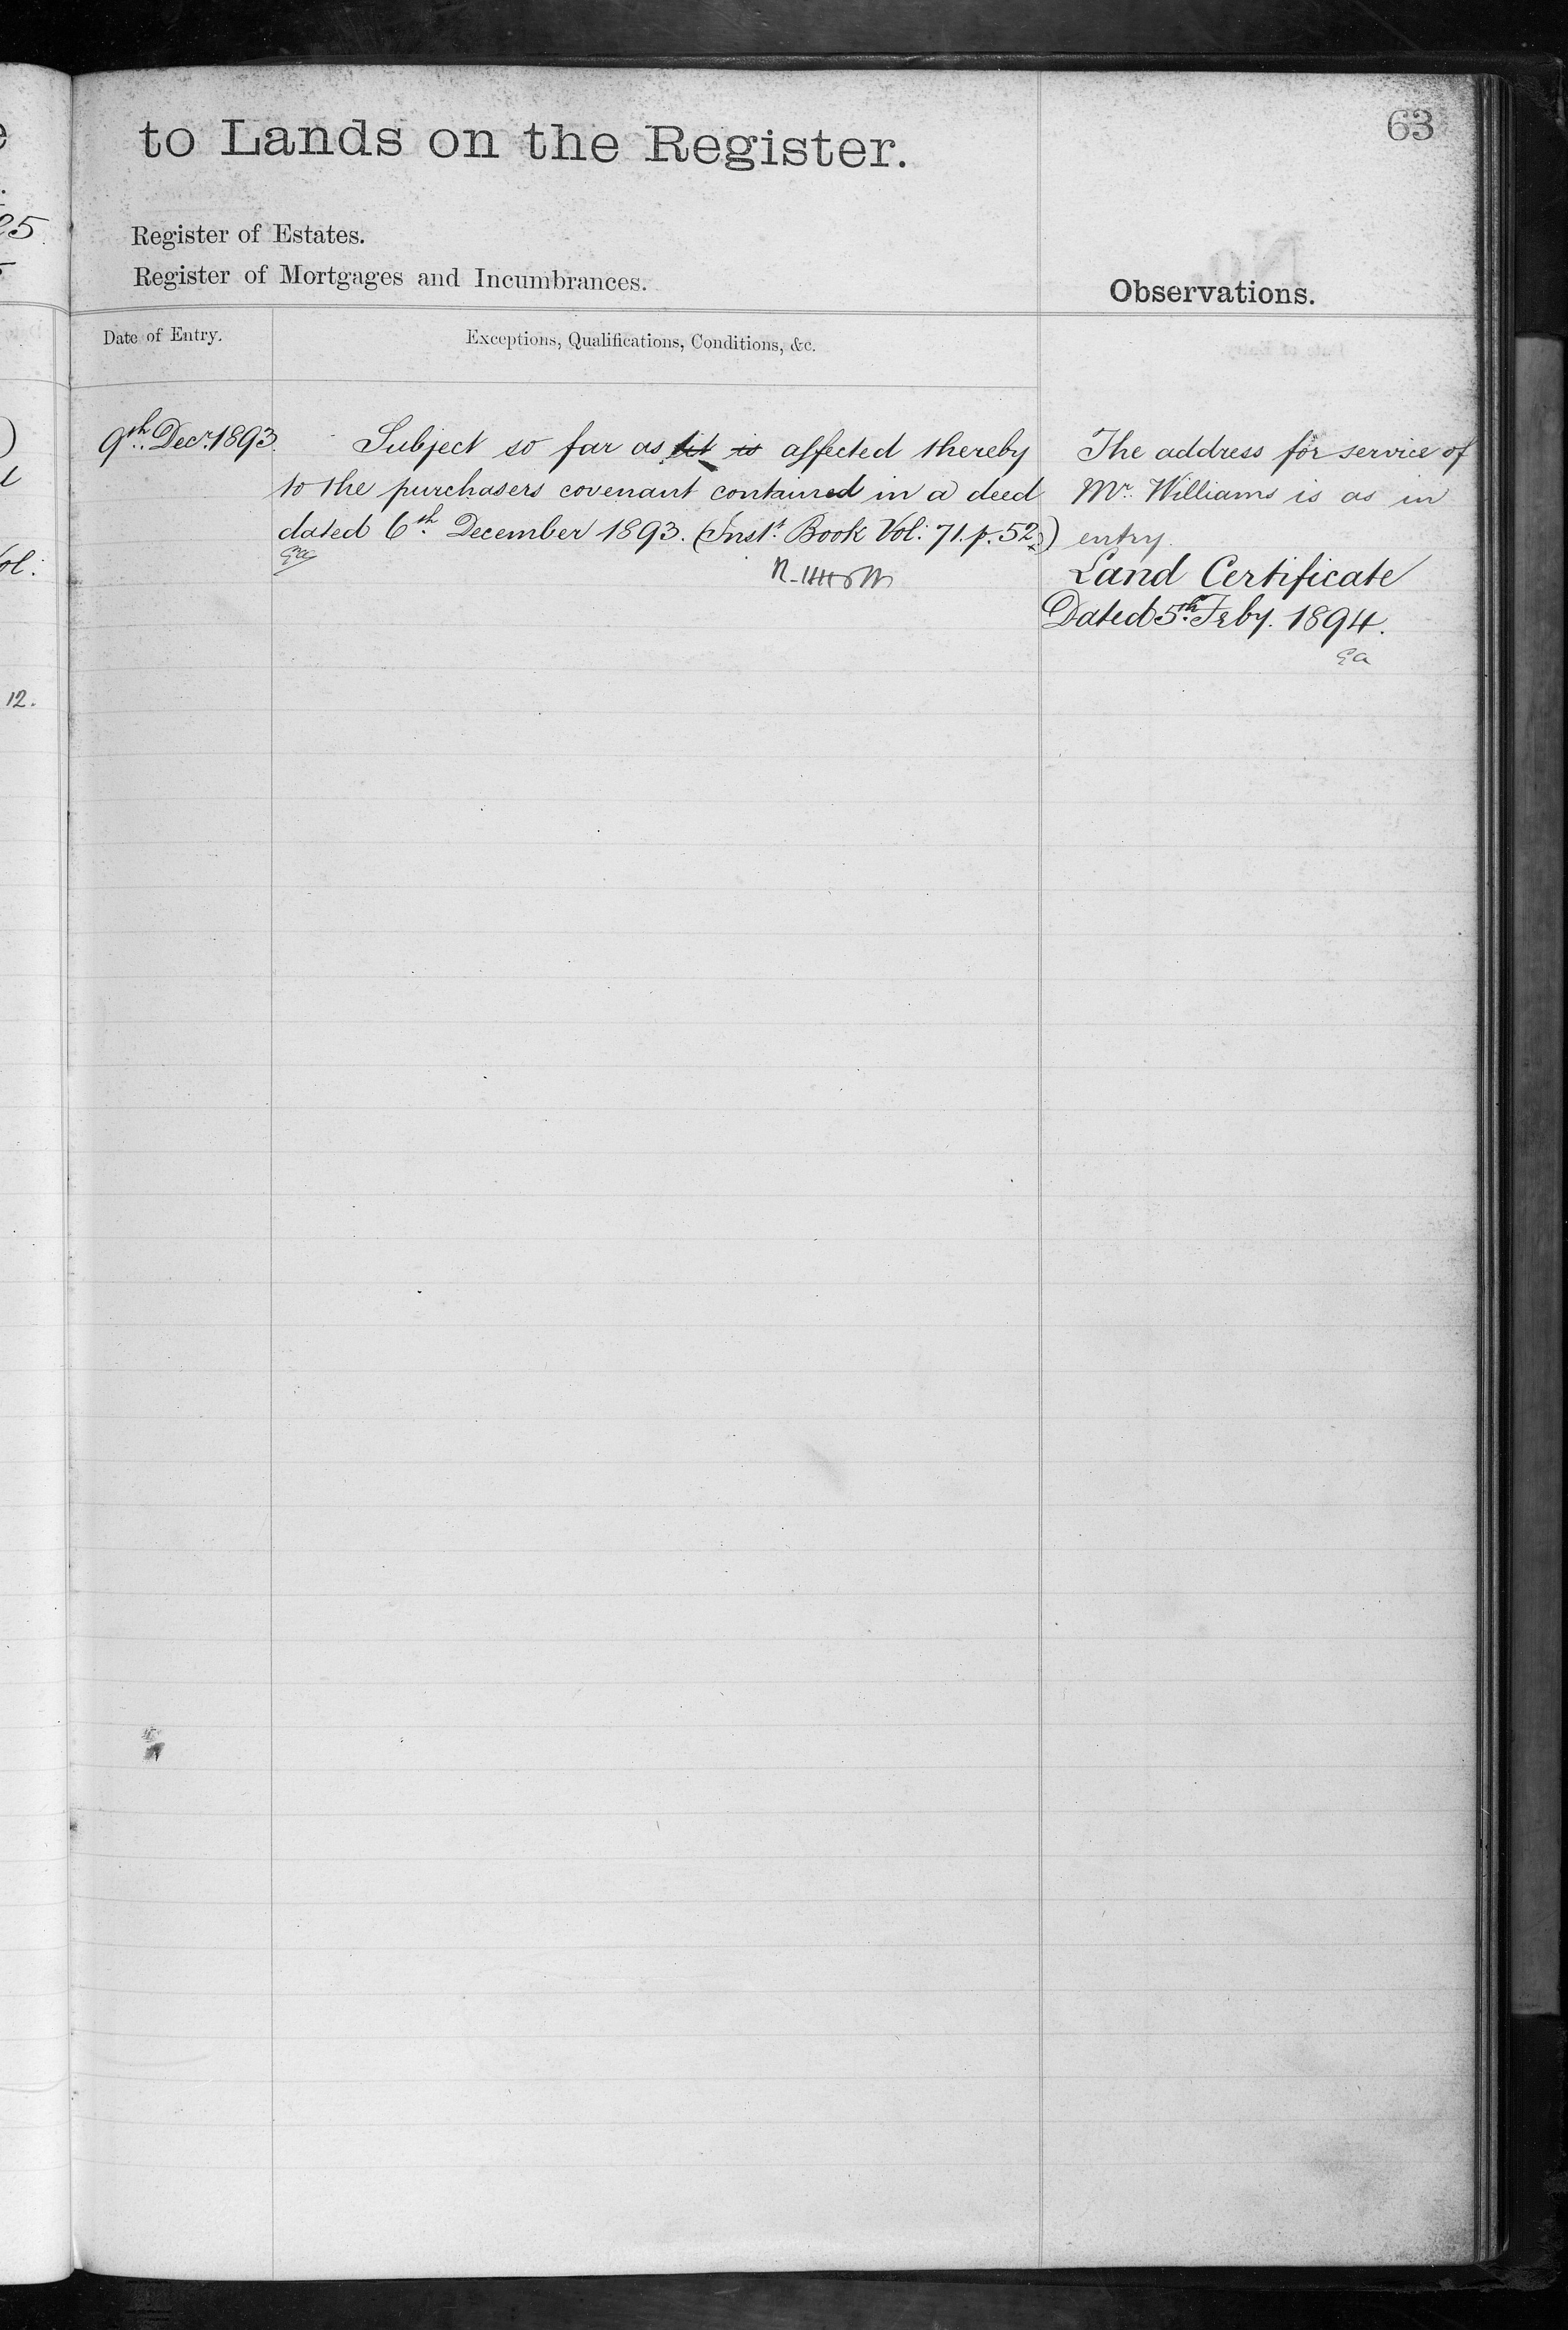 63
to Lands on the Register.
Register of Estates.
Register of Mortgages and Incumbrances.
Observations.
Date of Entry.
Exceptions, Qualifications, Conditions, &c.
9th. Decr. 1893.
Subject so far as it is affected thereby
to the purchasers covenant contained in a deed
dated 6th December 1893. (Inst. Book Vol: 71. p. 52.)
The address for service of
Mr. Williams is as in
entry.
Land Certificate
Dated 5th. Feby. 1894.
25.
12.